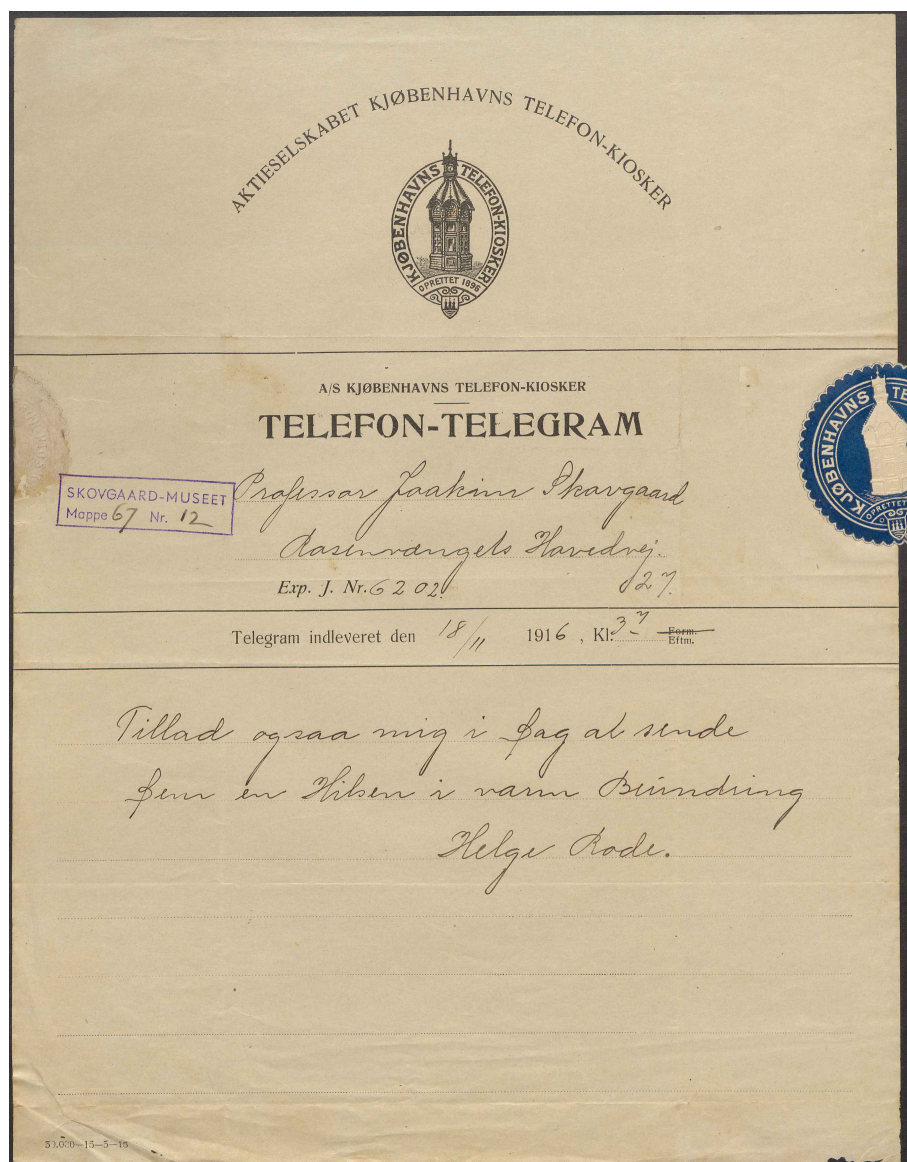 AKTIESELSKABET KJØBENHAVNS TELEFON-KIOSKER
KJØBENHAVNS TELEFON-KIOSKER
OPRETTET 1896
A/S KJØBENHAVNS TELEFON-KIOSKER
TELEFON-TELEGRAM
KJØBENHAVNS TE
OPRETTET
SKOVGAARD-MUSEET
Mappe 67 Nr. 12
Professor Joakim Skovgaard
Rosenvængets Hovedvej.
Exp. J. Nr. 6202. 27.
Telegram indleveret den 18/11 1916, Kl. 3 7 Form.
Eftm.
Tillad ogsaa mig i Dag at sende
Dem en Hilsen i varm Beundring
Helge Rode.
30,000—15—5—15